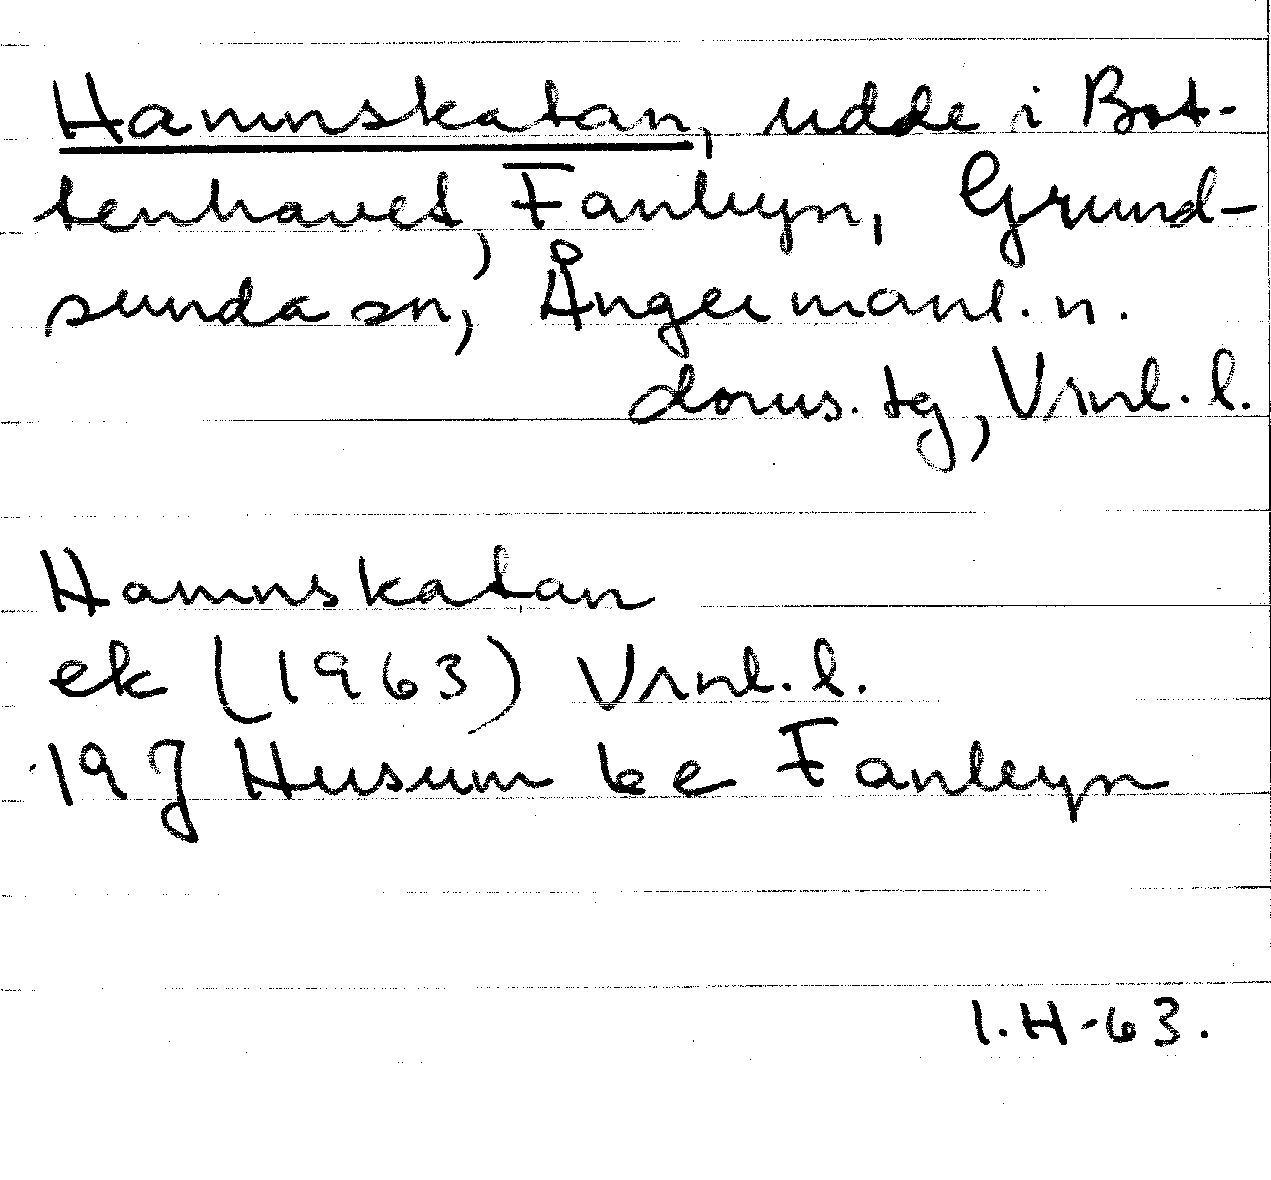 Hamnskatan, udde i Bot-
tenhavet, Fanbyn, Grund-
sunda sn, Ångermanl. n.
doms. tg, Vrnl. l.
Hamnskatan
ek (1963) Vrnl. l.
19 J Husum be Fanbyn
I. H -63.